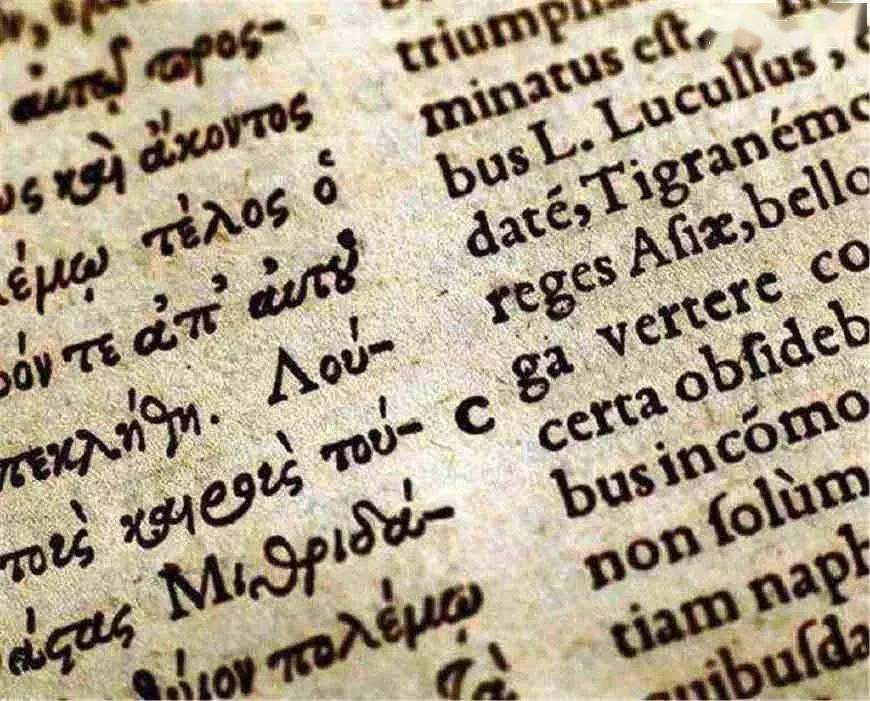 αὐτοῦ προς-
ως καὶ ἄκοντος
λέμῳ τέλος ὁ
όν τε ἀπ' αὐτοῦ
πεκλήθη. Λού-
τοὺς καιροὺς τού-
άξας Μιθριδά-
ιον πολέμῳ
τὰ
C
triumph
minatus eſt.
bus L. Lucullus ,
daté,Tigranémq
reges Aſiæ,bello
ga vertere co
certa obſideb
bus incõmo
non ſolùm
tiam naph
quibuſda